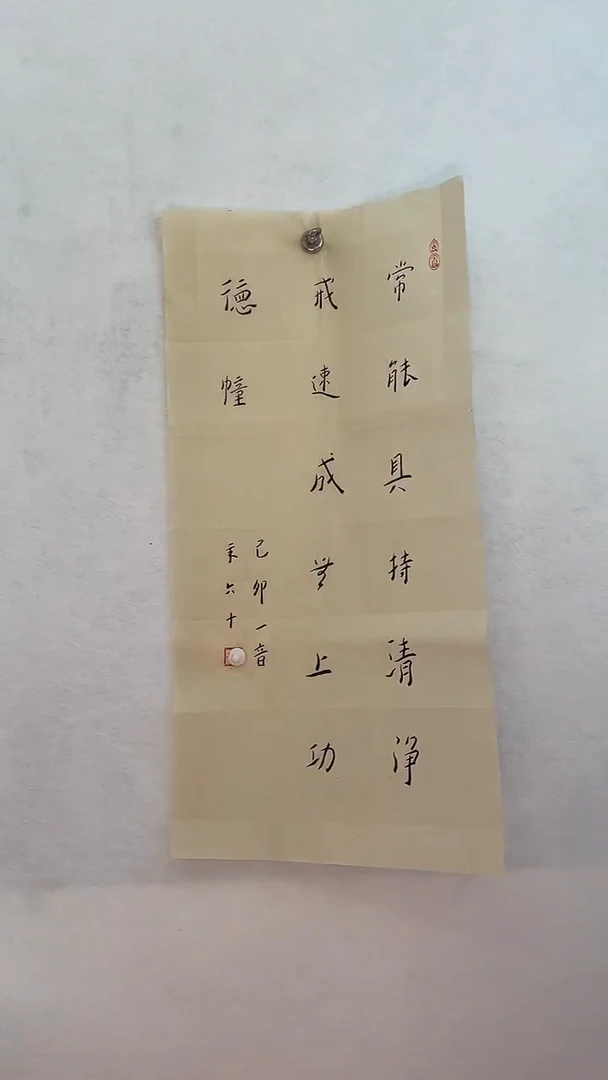 常能具持清浄
戒速成無上功
德幢
己卯一音
年六十